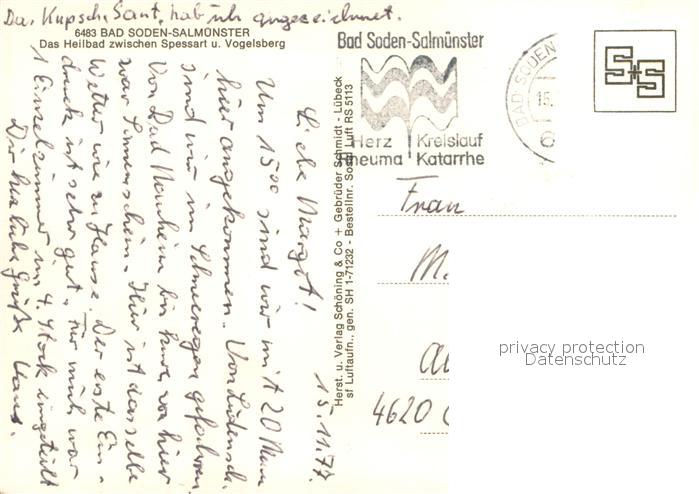 Das Kupsch. Sanat. hab ich angezeichnet.
6483 BAD SODEN-SALMÜNSTER
Das Heilbad zwischen Spessart u. Vogelsberg
15.11.77.
Liebe Margot!
Um 15⁰⁰ sind wir mit 20 Mann
hier angekommen. Von Lüdensch.
sind wir im Schneeregen gefahren.
Von Bad Nauheim bis kurz vor hier
war Sonnenschein. Hier ist dasselbe
Wetter wie zu Hause. Der erste Ein-
druck ist sehr gut. Für mich war
1 Einzelzimmer im 4. Stock eingeteilt
Dir herzliche Grüße Hans.
Herst. u. Verlag Schöning & Co + Gebrüder Schmidt - Lübeck
sf Luftaufn., gen. SH 1-71232 - Bestellnr. Sosa Luft RS 5113
Bad Soden-Salmünster
Herz Kreislauf
Rheuma Katarrhe
BAD SODEN
15.
6
S+S
Frau
M.
4620
privacy protection
Datenschutz